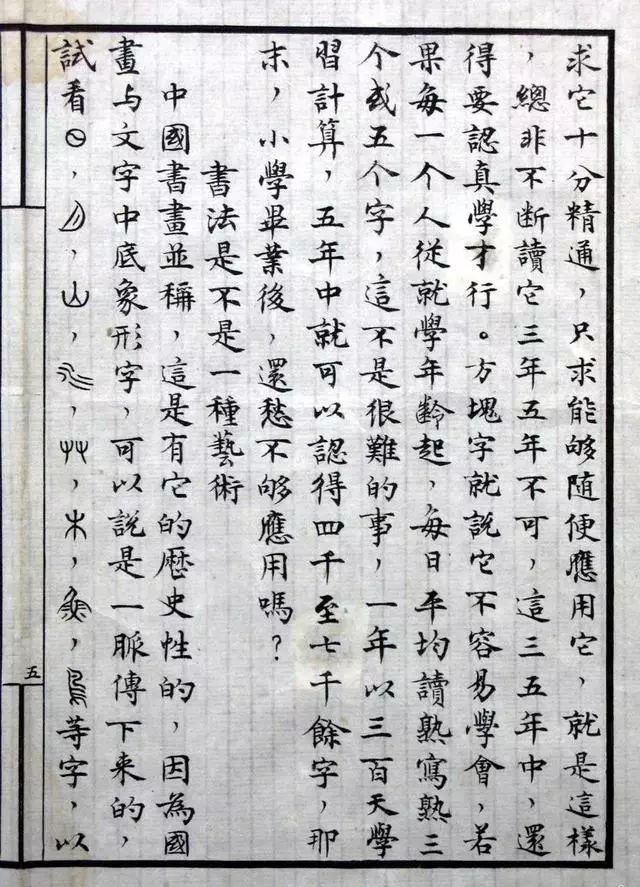 求它十分精通，只求能够随便應用它，就是這樣
，總非不断讀它三年五年不可，這三五年中，還
得要認真學才行。方塊字就說它不容易學會，若
果每一个人從就學年齡起，每日平均讀熟寫熟三
个或五个字，這不是很難的事，一年以三百天學
習計算，五年中就可以認得四千至七千餘字，那
末，小學畢業後，還愁不够應用嗎？
書法是不是一種藝術
中國書畫並稱，這是有它的歷史性的，因為國
畫与文字中底象形字，可以說是一脈傳下來的，
試看，，山，，艸，木，，等字，以
五